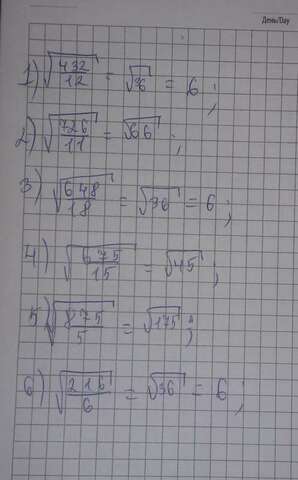 День/Day
1) √(432/12) = √36 = 6 ;
2) √(726/11) = √66 ;
3) √(648/18) = √36 = 6 ;
4) √(675/15) = √45 ;
5) √(875/5) = √175 ;
6) √(216/6) = √36 = 6 ;